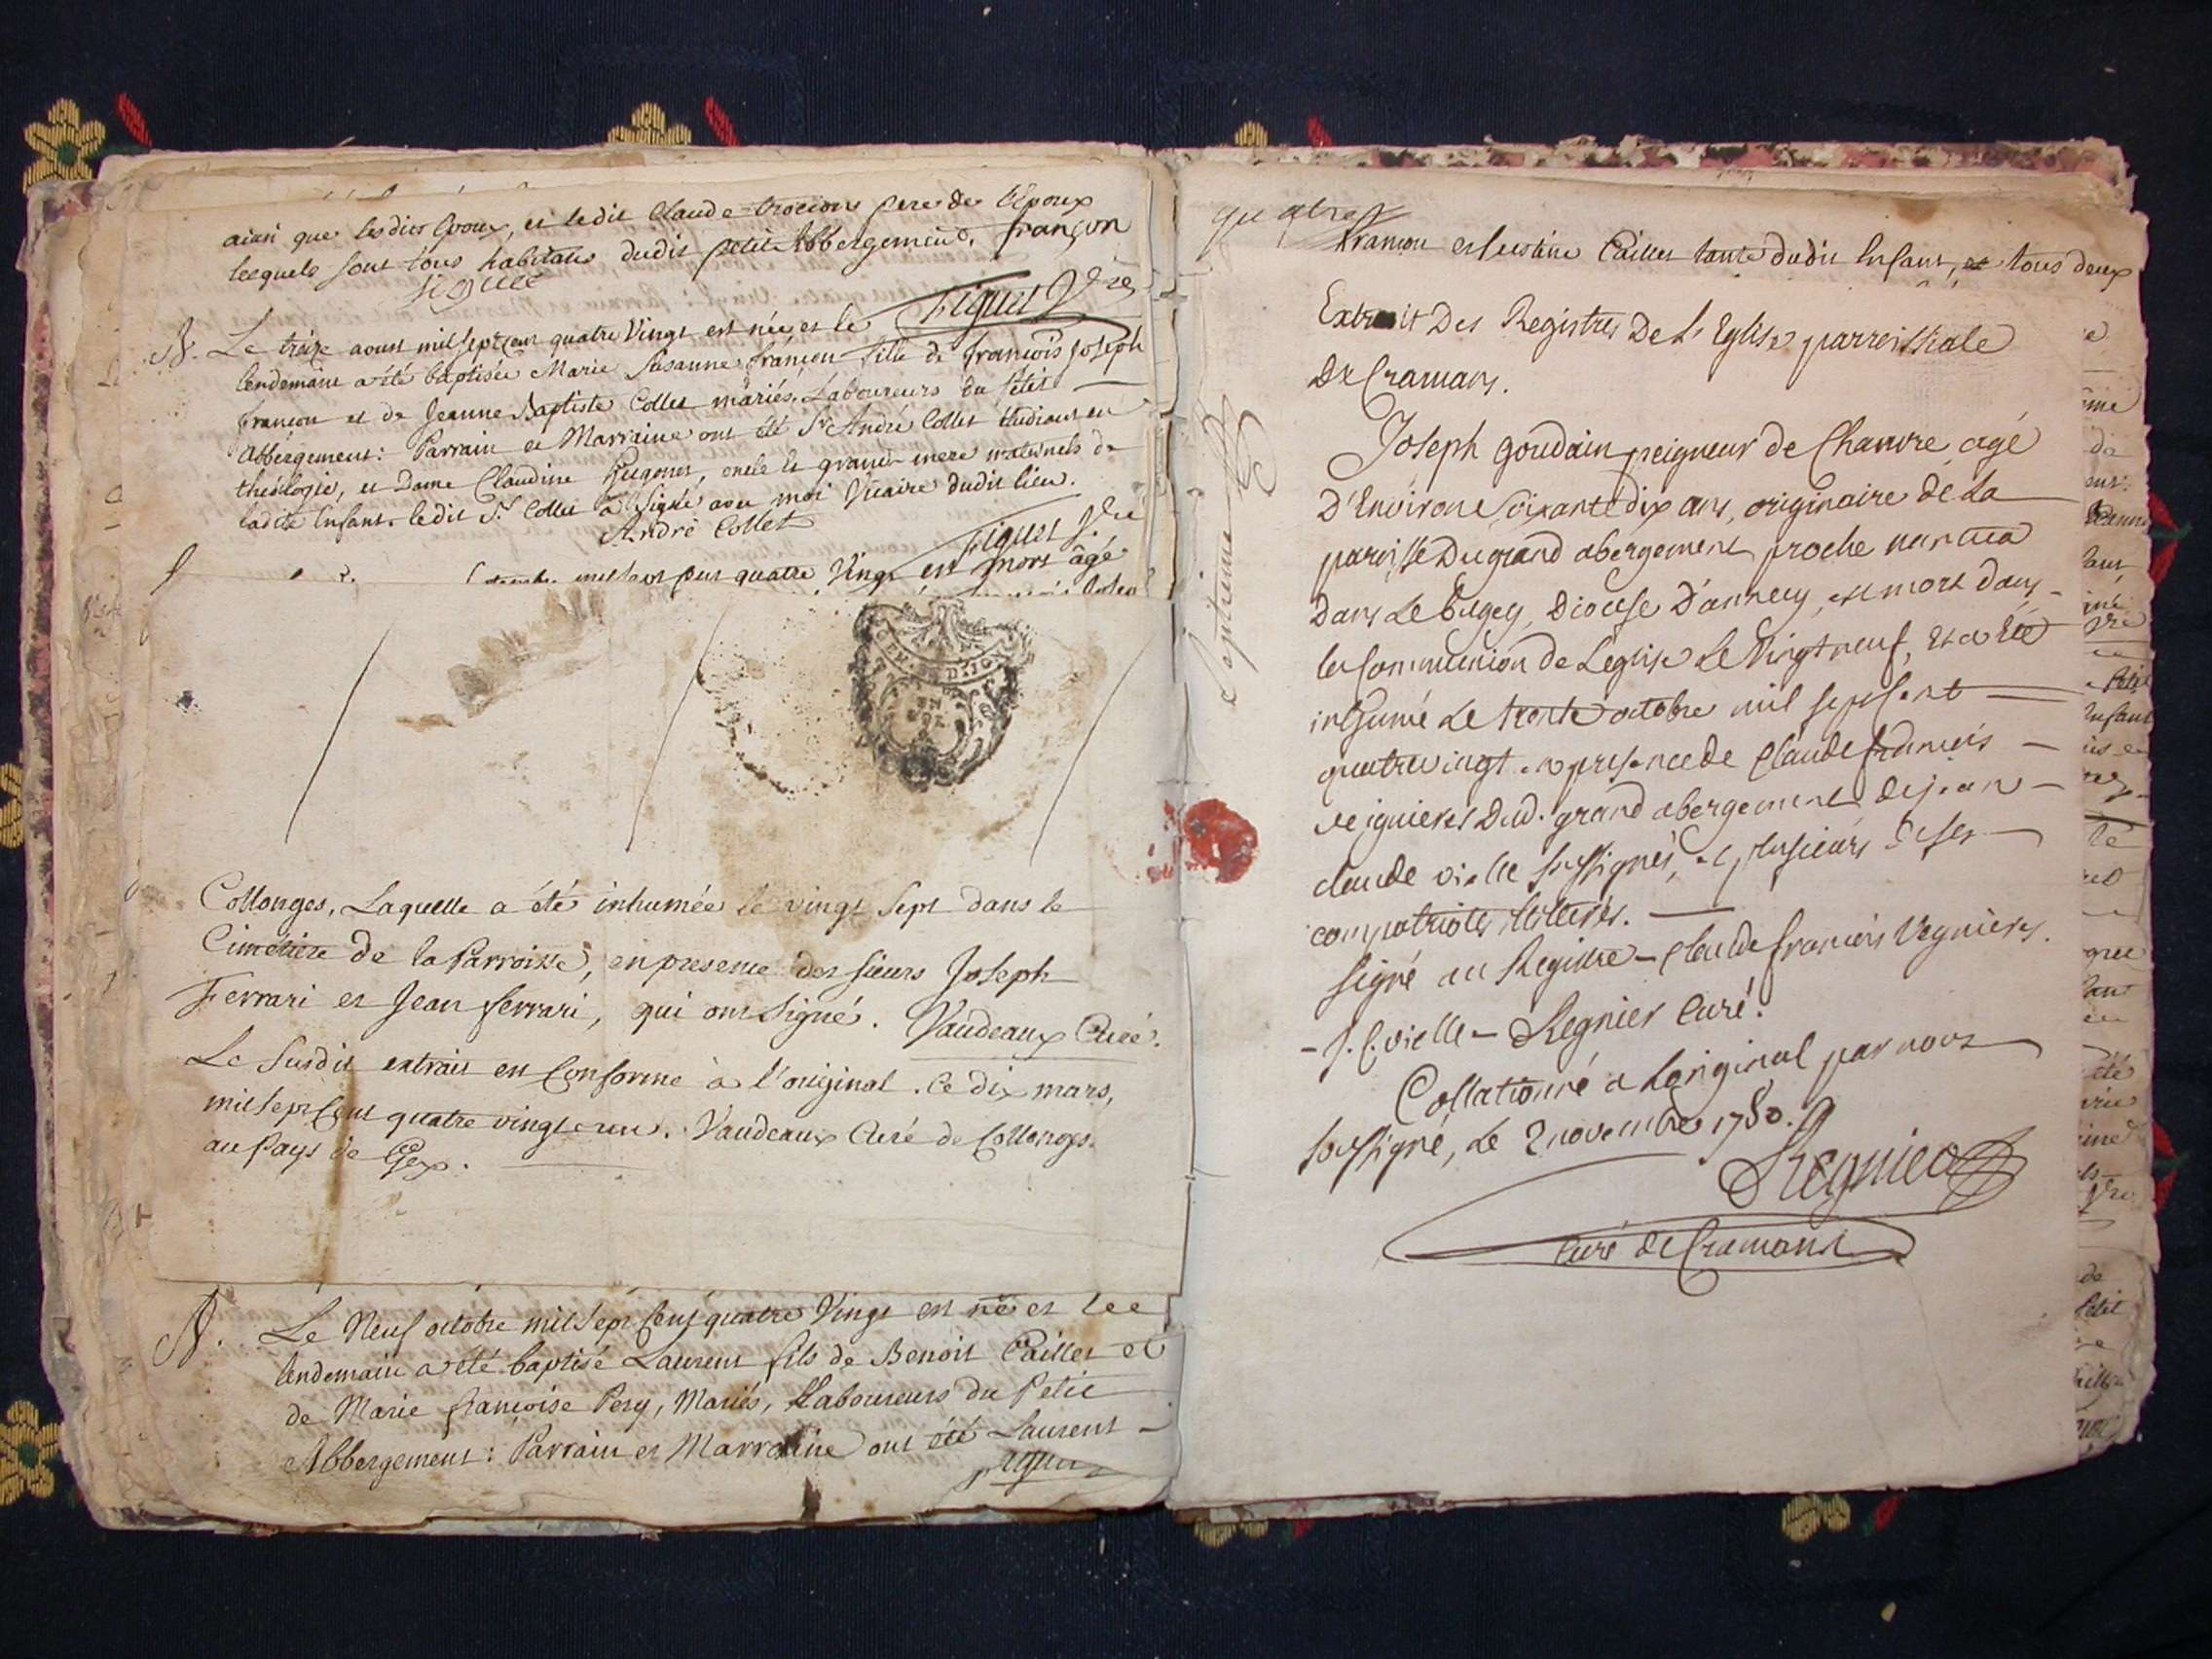 ainsi que lesdits Epoux, et ledit Claude père de l'Epoux
lesquels sont tous habitans dudit petit Abbergement. françon
signé
Figuet Vre
N. Le treize aoust mil sept cent quatre Vingt est née et le
lendemain a été baptisée Marie Susanne françon fille de françois Joseph
françon et de Jeanne Baptiste Collet mariés, Laboureurs du petit
Abbergement: Parrain et Marraine ont été Sr André Collet étudiant en
théologie, et Dame Claudine Hugonet, oncle et grand-mere maternels de
ladite Enfant. ledit Sr Collet a signé avec moi Vicaire dudit lieu.
André Collet
Figuet Vre
mil sept cent quatre Vingt est mort âgé
GEN. DIJON
Collonges, Laquelle a été inhumée le vingt sept dans le
Cimétiere de la Parroisse, en presence des sieurs Joseph
Ferrari et Jean ferrari, qui ont signé. Vaudeaux Curé.
Le susdit extrait est Conforme à l'original. Ce dix mars,
mil sept Cent quatre vingt et un. Vaudeaux Curé de Collonges
au Pays de Gex.
N. Le Neuf octobre mil sept Cent quatre Vingt est né et le
lendemain a été baptisé Laurent fils de Benoit Caillet et
de Marie françoise Pery, Mariés, Laboureurs du Petit
Abbergement: Parrain et Marraine ont été Laurent
quatre
françon et Justine Caillet tante dudit Enfant, tous deux
Extrait Des Registres De L'Eglise parroissiale
De Cramans.
Joseph goudain peigneur de Chanvre agé
D'Environ Soixante dix ans, originaire de La
paroisse Du grand abergement proche nantua
Dans Le Bugey, Diocese D'annecy, est mort dans
la Communion de Leglise Le Vingt neuf, Et a Eté
inhumé Le trente octobre mil sept Cent
quatre vingt en presence de Claude francois
veignieres Dud. grand abergement de jean
claude vielle soussignés, et plusieurs de ses
compatriotes illiterés.
signé au Registre - Claude francois Vegnieres.
- J. C. vielle - Regnier Curé.
Collationné a Loriginal par nous
soussigné, Le 2 novembre 1780.
Regnier
Curé de Cramans
septieme